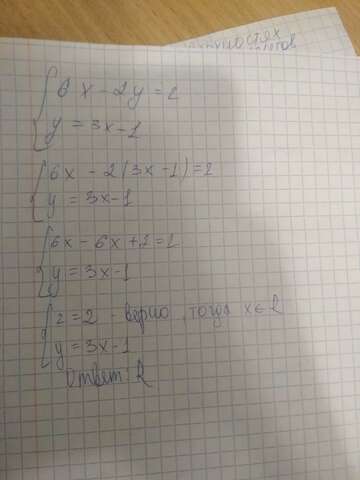 ностях
6x - 2y = 2
y = 3x - 1
6x - 2(3x - 1) = 2
y = 3x - 1
6x - 6x + 2 = 2
y = 3x - 1
2 = 2 - верно, тогда x ∈ R
y = 3x - 1
Ответ: R